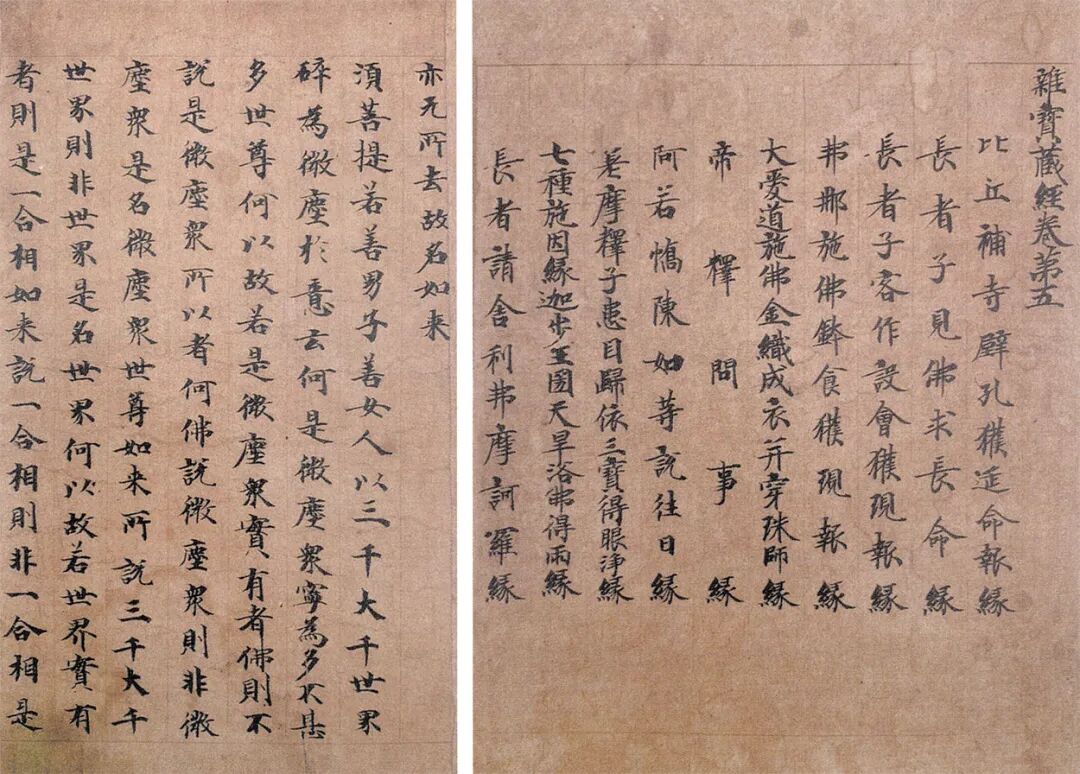 雜寶藏經卷第五
比丘補寺壁孔獲延命報緣
長者子見佛求長命緣
長者子客作設會獲現報緣
弗那施佛鉢食獲現報緣
大愛道施佛金織成衣并穿珠師緣
帝釋問事緣
阿若憍陳如等說往日緣
差摩釋子患目歸依三寶得眼淨緣
七種施因緣迦步王國天旱浴佛得雨緣
長者請舍利弗摩訶羅緣
亦无所去故名如来
須菩提若善男子善女人以三千大千世界
碎為微塵於意云何是微塵衆寧為多不甚
多世尊何以故若是微塵衆實有者佛則不
說是微塵衆所以者何佛說微塵衆則非微
塵衆是名微塵衆世尊如来所說三千大千
世界則非世界是名世界何以故若世界實有
者則是一合相如来說一合相則非一合相是